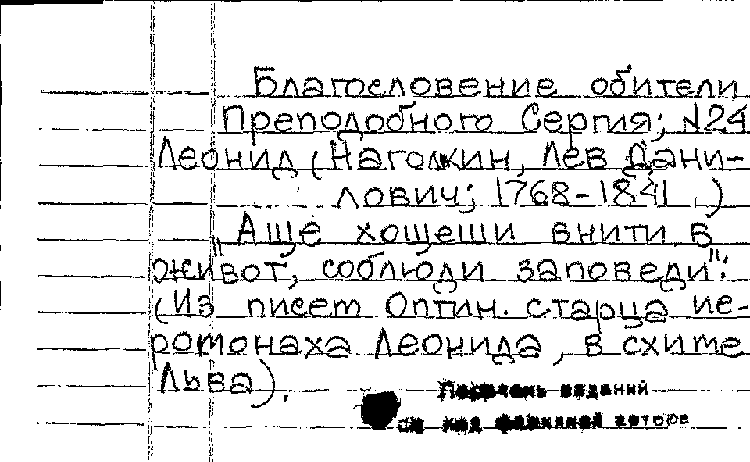 Благословение обители
Преподобного Сергия; №24
Леонид (Наголкин, Лев Дани-
лович; 1768-1841 .)
„Аще хощеши внити в
живот, соблюди заповеди":
(Из писет Оптин. старца ие-
ромонаха Леонида, в схиме
Льва).
изданий
под фамилией автора